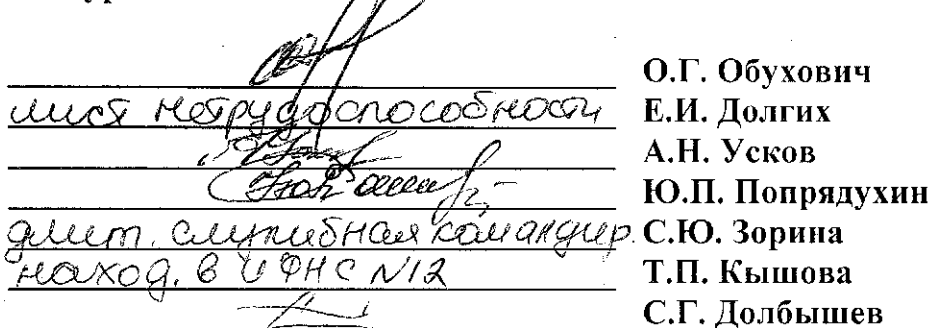 О.Г. Обухович
лист нетрудоспособности Е.И. Долгих
А.Н. Усков
Ю.П. Попрядухин
длит. служебная командир. С.Ю. Зорина
наход. в ИФНС №12 Т.П. Кышова
С.Г. Долбышев